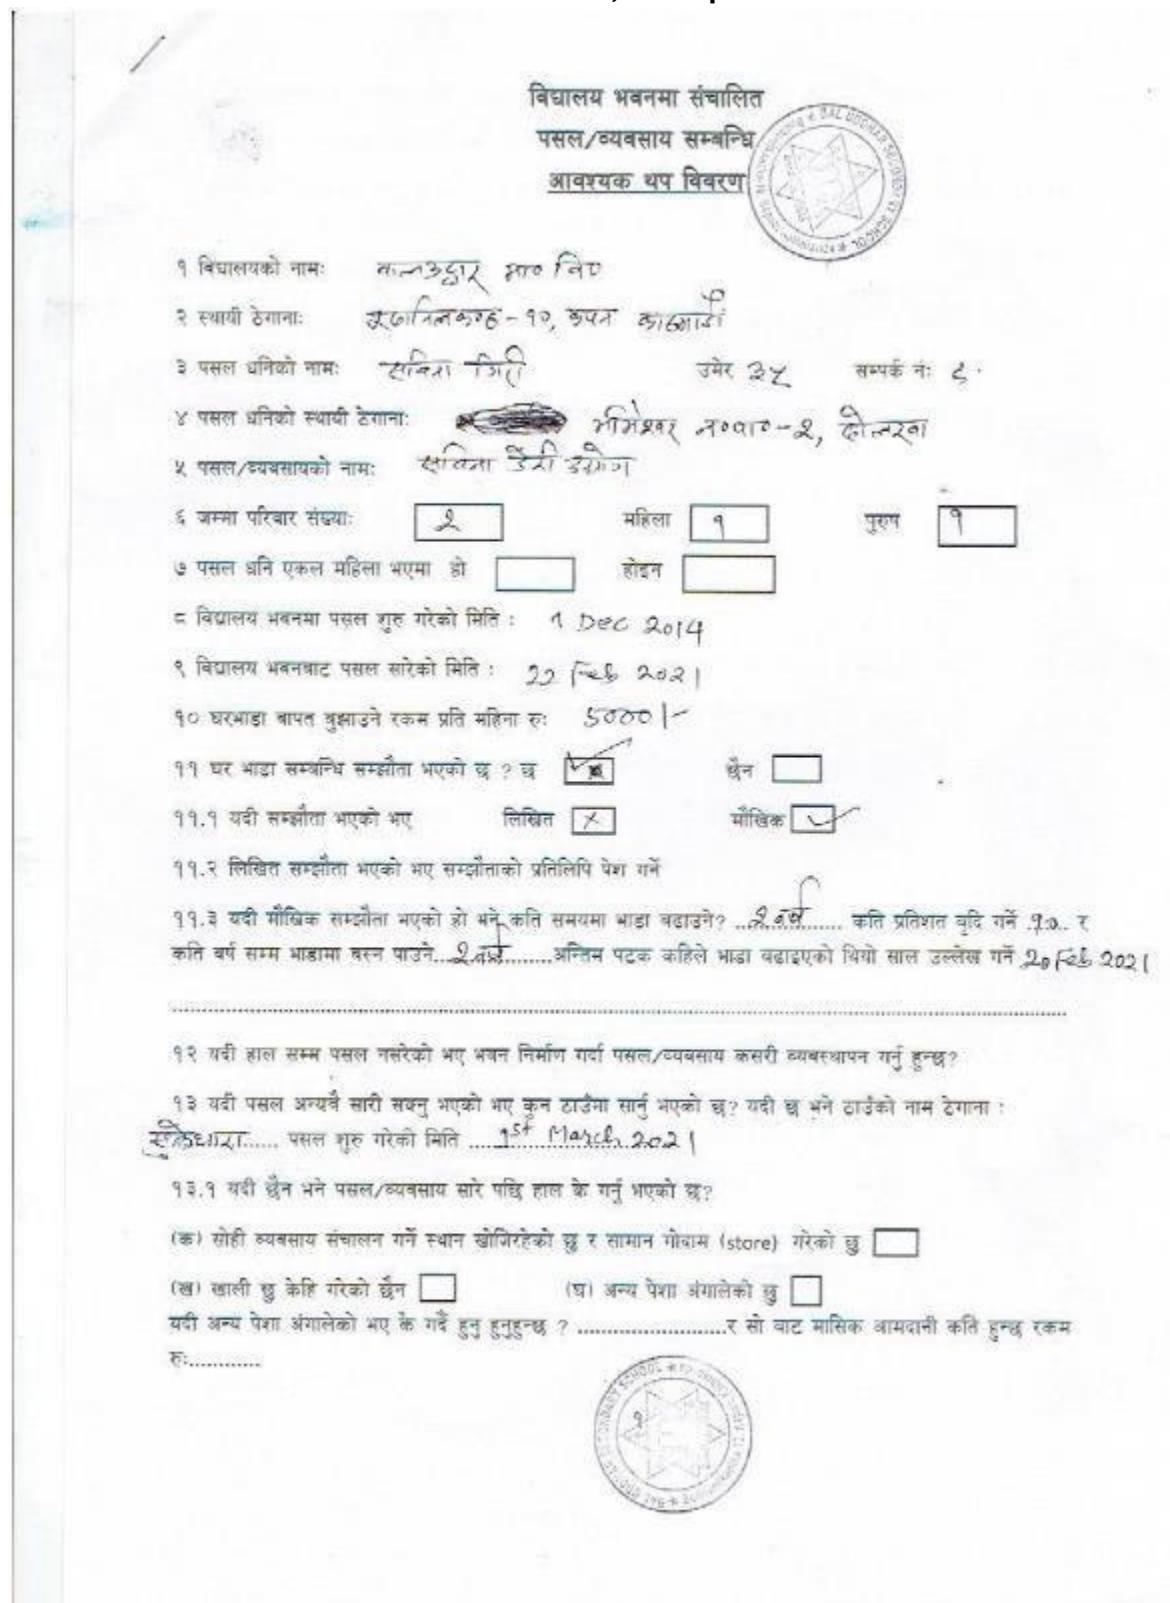 विद्यालय भवनमा संचालित
पसल/व्यवसाय सम्बन्धि
आवश्यक थप विवरण
BAL UDDHAR SECONDARY SCHOOL
१ विद्यालयको नामः बालउद्धार मा० वि०
२ स्थायी ठेगानाः बुढानिलकण्ठ-१०, कपन काठमाडौं
३ पसल धनिको नामः सविता गिरी उमेर ३५ सम्पर्क नंः ९
४ पसल धनिको स्थायी ठेगानाः भीमेश्वर न०पा०-२, दोलखा
५ पसल/व्यवसायको नामः सविता डेरी उद्योग
६ जम्मा परिवार संख्याः २ महिला १ पुरुष १
७ पसल धनि एकल महिला भएमा हो होइन
८ विद्यालय भवनमा पसल शुरु गरेको मिति : 1 Dec 2014
९ विद्यालय भवनबाट पसल सारेको मिति : 22 Feb 2021
१० घरभाडा बापत बुझाउने रकम प्रति महिना रुः 5000/-
११ घर भाडा सम्बन्धि सम्झौता भएको छ ? छ ✓ छैन
११.१ यदी सम्झौता भएको भए लिखित × मौखिक ✓
११.२ लिखित सम्झौता भएको भए सम्झौताको प्रतिलिपि पेश गर्ने
११.३ यदी मौखिक सम्झौता भएको हो भने कति समयमा भाडा बढाउने? ..२ वर्ष...... कति प्रतिशत वृदि गर्ने .१०.. र
कति वर्ष सम्म भाडामा बस्न पाउने...२ वर्ष.........अन्तिम पटक कहिले भाडा बढाइएको थियो साल उल्लेख गर्ने 20 Feb 2021
१२ यदी हाल सम्म पसल नसरेको भए भवन निर्माण गर्दा पसल/व्यवसाय कसरी व्यवस्थापन गर्नु हुन्छ?
१३ यदी पसल अन्यत्रै सारी सक्नु भएको भए कुन ठाउँमा सार्नु भएको छ? यदी छ भने ठाउँको नाम ठेगाना :
सुकेधारा..... पसल शुरु गरेको मिति ....1st March 2021
१३.१ यदी छैन भने पसल/व्यवसाय सारे पछि हाल के गर्नु भएको छ?
(क) सोही व्यवसाय संचालन गर्ने स्थान खोजिरहेको छु र सामान गोदाम (store) गरेको छु
(ख) खाली छु केहि गरेको छैन (घ) अन्य पेशा अंगालेको छु
यदी अन्य पेशा अंगालेको भए के गर्दै हुनु हुनुहुन्छ ? .........................र सो वाट मासिक आमदानी कति हुन्छ रकम
रुः............
१